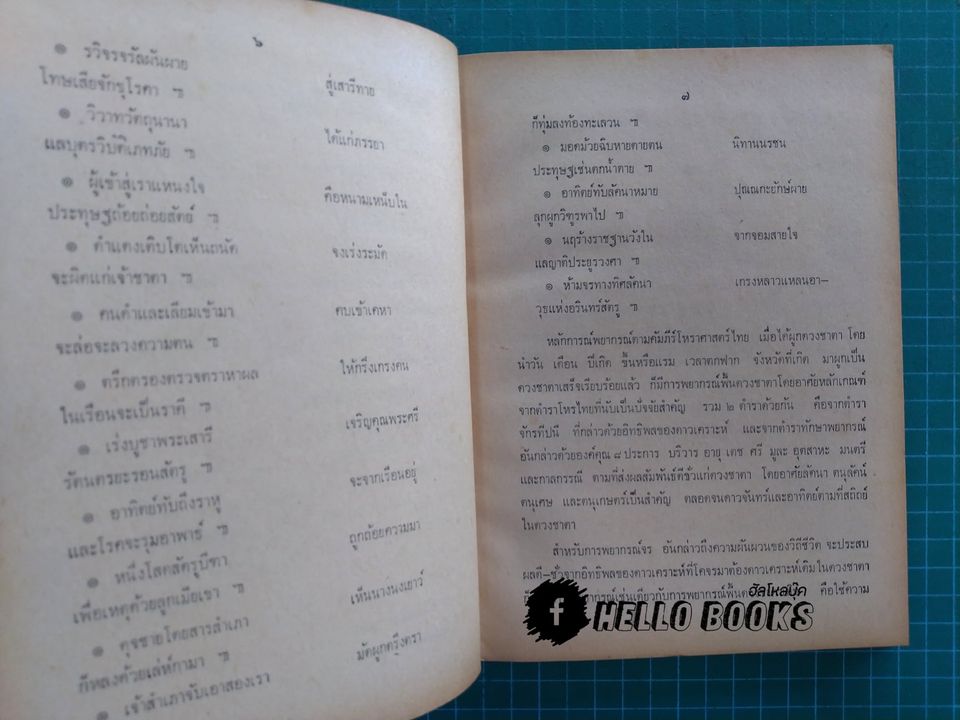 ๖
๑ รวิจรจรัลผันผาย สู่เสารีทาย
โทษเสียจักขุโรคา ๚
๑ วิวาทวัตถุนานา ได้แก่ภรรยา
แลบุตรวิบัติเภทภัย ๚
๑ ผู้เข้าสู่เราแหนงใจ คือหนามเหน็บใน
ประทุษฐถ้อยถ่อยสัตย์ ๚
๑ ดำแดงเติบโตเห็นถนัด จงเร่งระมัด
จะผิดแก่เจ้าชาตา ๚
๑ คนดำและเลียมเข้ามา คบเข้าเคหา
จะล่อจะลวงความตน ๚
๑ ตรึกตรองตรวจตราหาผล ให้กริ่งเกรงคน
ในเรือนจะเป็นราคี ๚
๑ เร่งบูชาพระเสารี เจริญคุณพระศรี
รัตนตรยะรอนสัตรู ๚
๑ อาทิตย์ทับถึงราหู จะจากเรือนอยู่
และโรคจะรุมอาพาธ์ ๚
๑ หนึ่งโสดสัตรูบีฑา ถูกถ้อยความมา
เพื่อเหตุด้วยลูกเมียเขา ๚
๑ ดุจชายโดยสารสำเภา เห็นนางนงเยาว์
ก็หลงด้วยเล่ห์กามา ๚
๑ เจ้าสำเภาจับเอาสองเรา มัดผูกตรึงตรา
๗
ก็ทุ่มลงท้องทะเลวน ๚
๑ มอดม้วยฉิบหายตายตน นิทานนรชน
ประทุษฐเช่นตกน้ำตาย ๚
๑ อาทิตย์ทับลัคนาหมาย ปุณณกะยักษ์ผาย
ลุกผูกวิฑูรพาไป ๚
๑ นฤร้างราชฐานวังใน จากจอมสายใจ
แลญาติประยูรวงศา ๚
๑ ห้ามจรทางทิศลัคนา เกรงหลาวแหลนอา–
วุธแห่งอรินทร์สัตรู ๚
หลักการณ์พยากรณ์ตามคัมภีร์โหราศาสตร์ไทย เมื่อได้ผูกดวงชาตา โดย
นำวัน เดือน ปีเกิด ขึ้นหรือแรม เวลาตกฟาก จังหวัดที่เกิด มาผูกเป็น
ดวงชาตาเสร็จเรียบร้อยแล้ว ก็มีการพยากรณ์พื้นดวงชาตาโดยอาศัยหลักเกณฑ์
จากตำราโหรไทยที่นับเป็นปัจจัยสำคัญ รวม ๒ ตำราด้วยกัน คือจากตำรา
จักรทีปนี ที่กล่าวด้วยอิทธิพลของดาวเคราะห์ และจากตำราทักษาพยากรณ์
อันกล่าวด้วยองค์คุณ ๘ ประการ บริวาร อายุ เดช ศรี มูละ อุตสาหะ มนตรี
และกาลกรรณี ตามที่ส่งผลสัมพันธ์ดีชั่วแก่ดวงชาตา โดยอาศัยลัคนา ตนุลัคน์
ตนุเศษ และตนุเกษตร์เป็นสำคัญ ตลอดจนดาวจันทร์และอาทิตย์ตามที่สถิตย์
ในดวงชาตา
สำหรับการพยากรณ์จร อันกล่าวถึงความผันผวนของวิถีชีวิต จะประสบ
ผลดี–ชั่วจากอิทธิพลของดาวเคราะห์ที่โคจรมาต้องดาวเคราะห์เดิมในดวงชาตา
พยากรณ์เช่นเดียวกับการพยากรณ์พื้นดวง คือใช้ความ
ฮัลโหลบุ๊ค
HELLO BOOKS